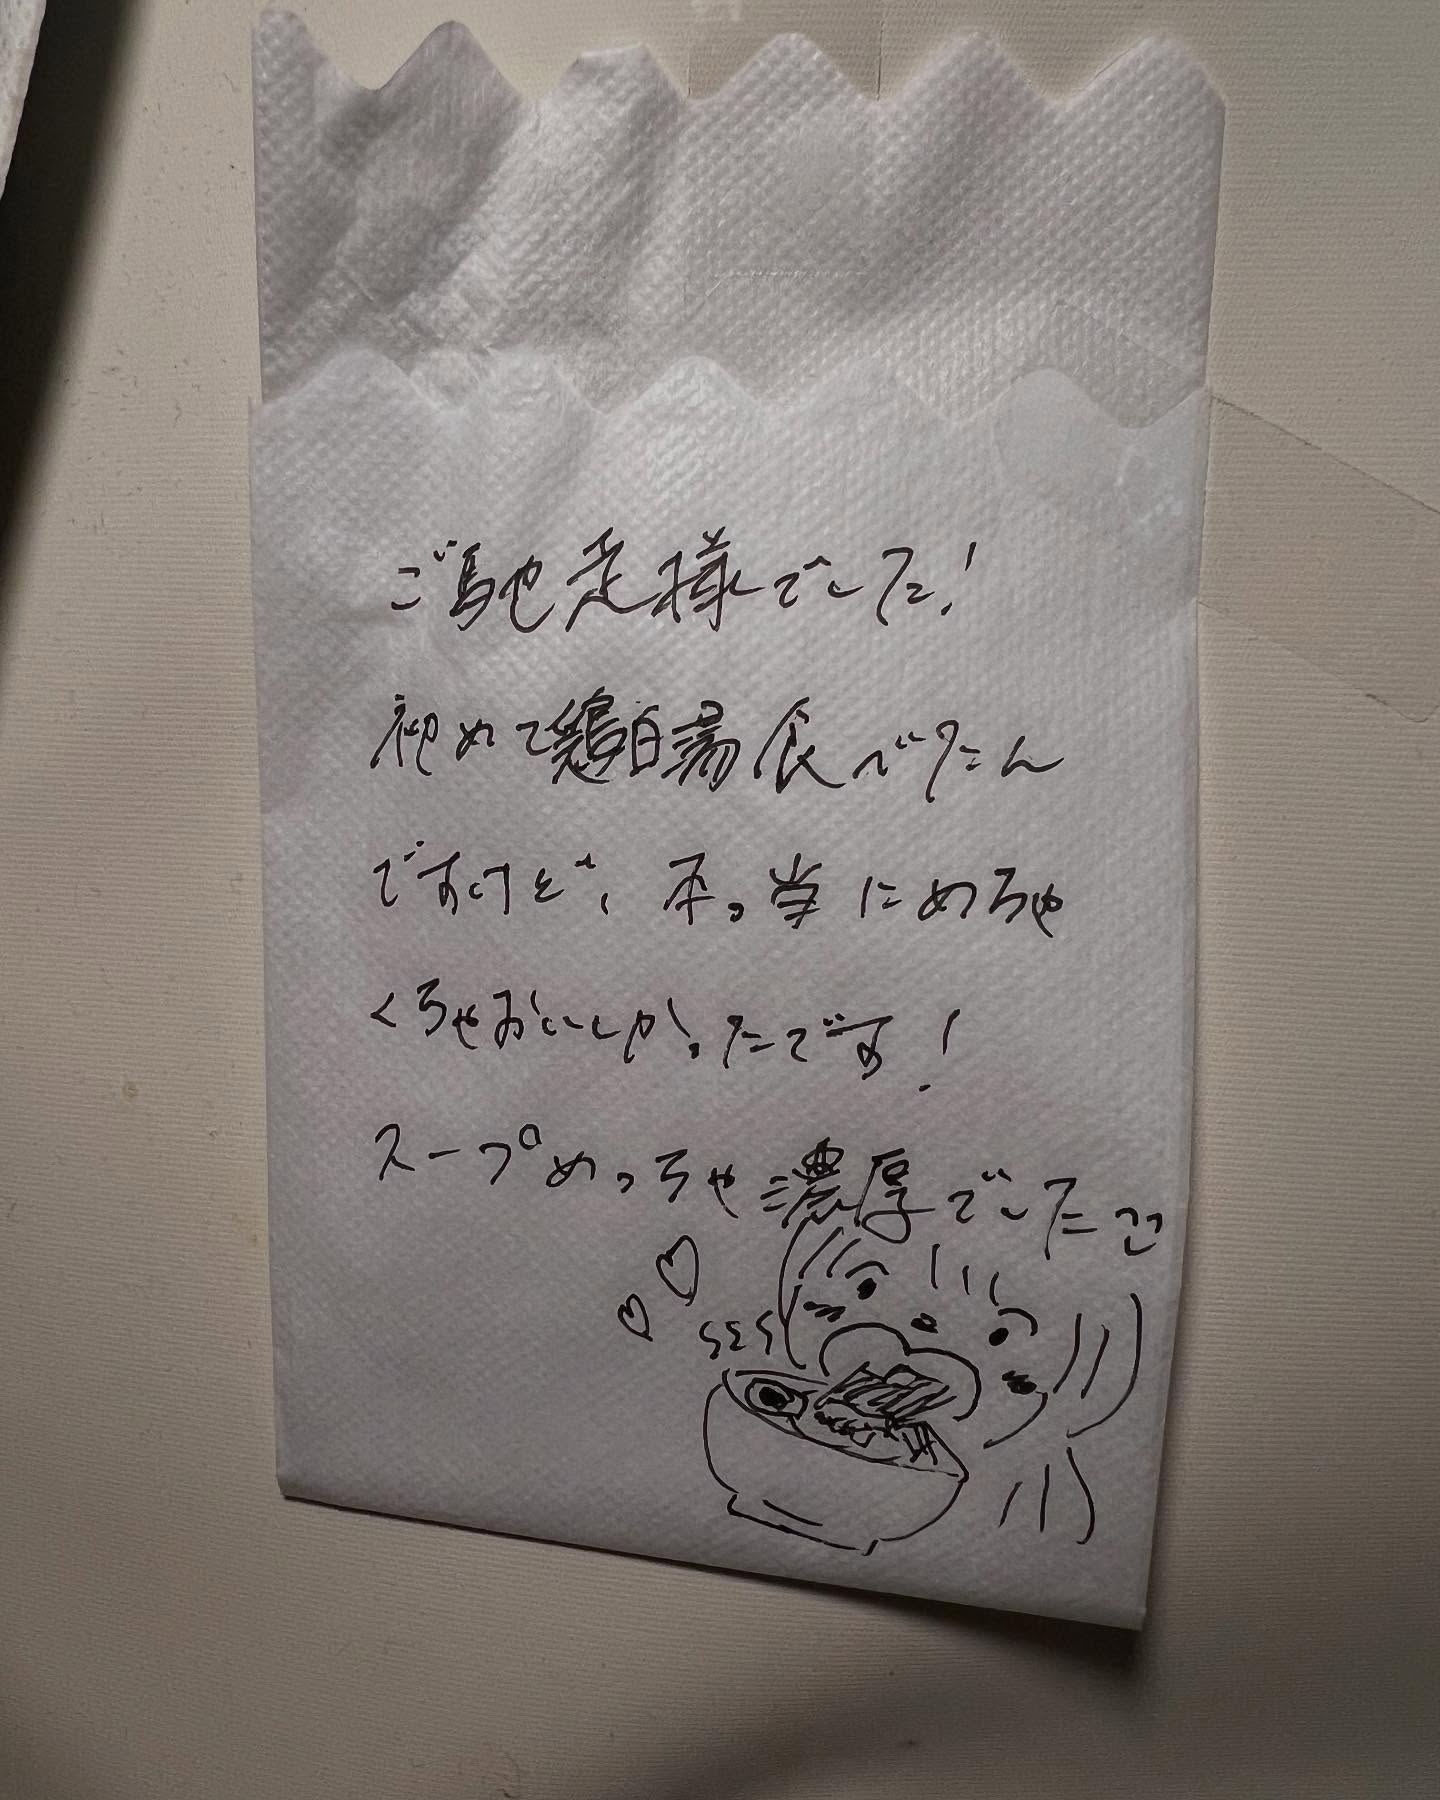 ご馳走様でした!
初めて鶏白湯食べたん
ですけど、本っ当にめちゃ
くちゃおいしかったです!
スープめっちゃ濃厚でした